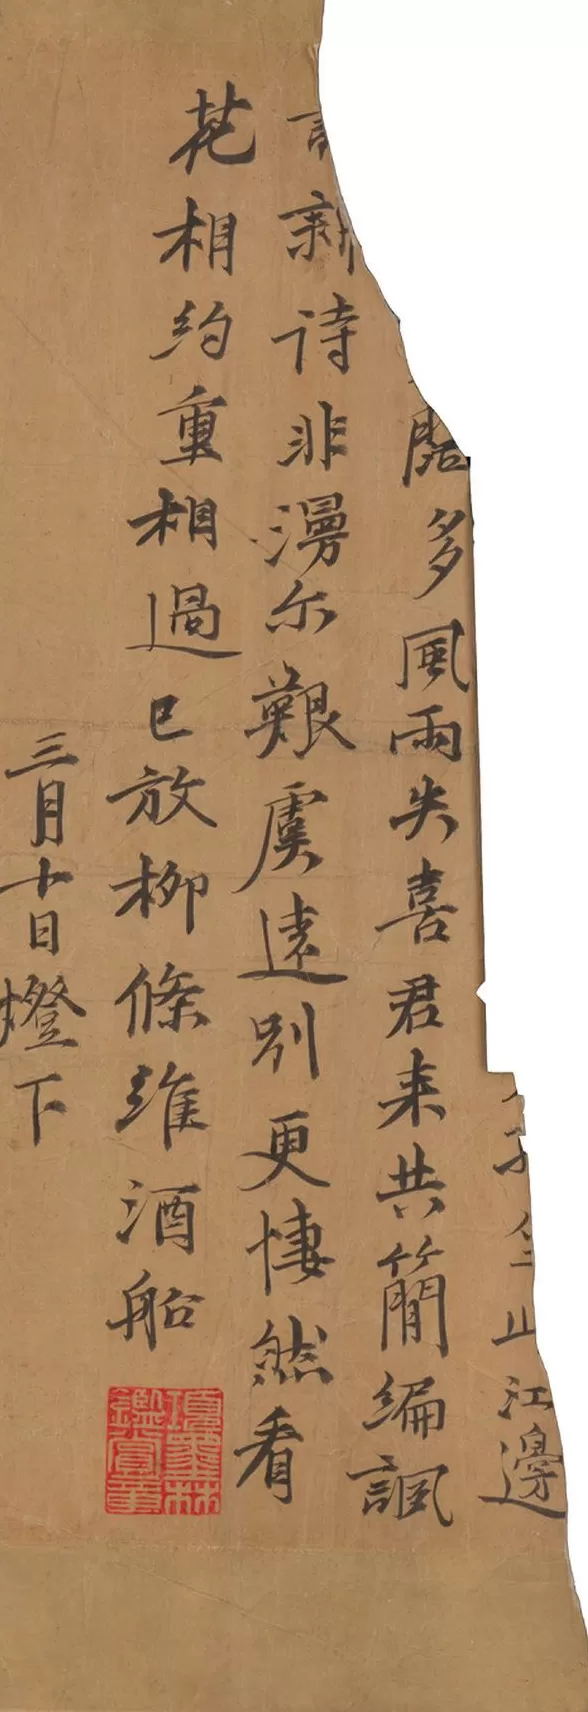 江邊
多風雨失喜君来共簡編諷
新詩非漫尔艱虞遠別更悽然看
花相約重相過已放柳條維酒船
三月十日燈下
項墨林
鑑賞章